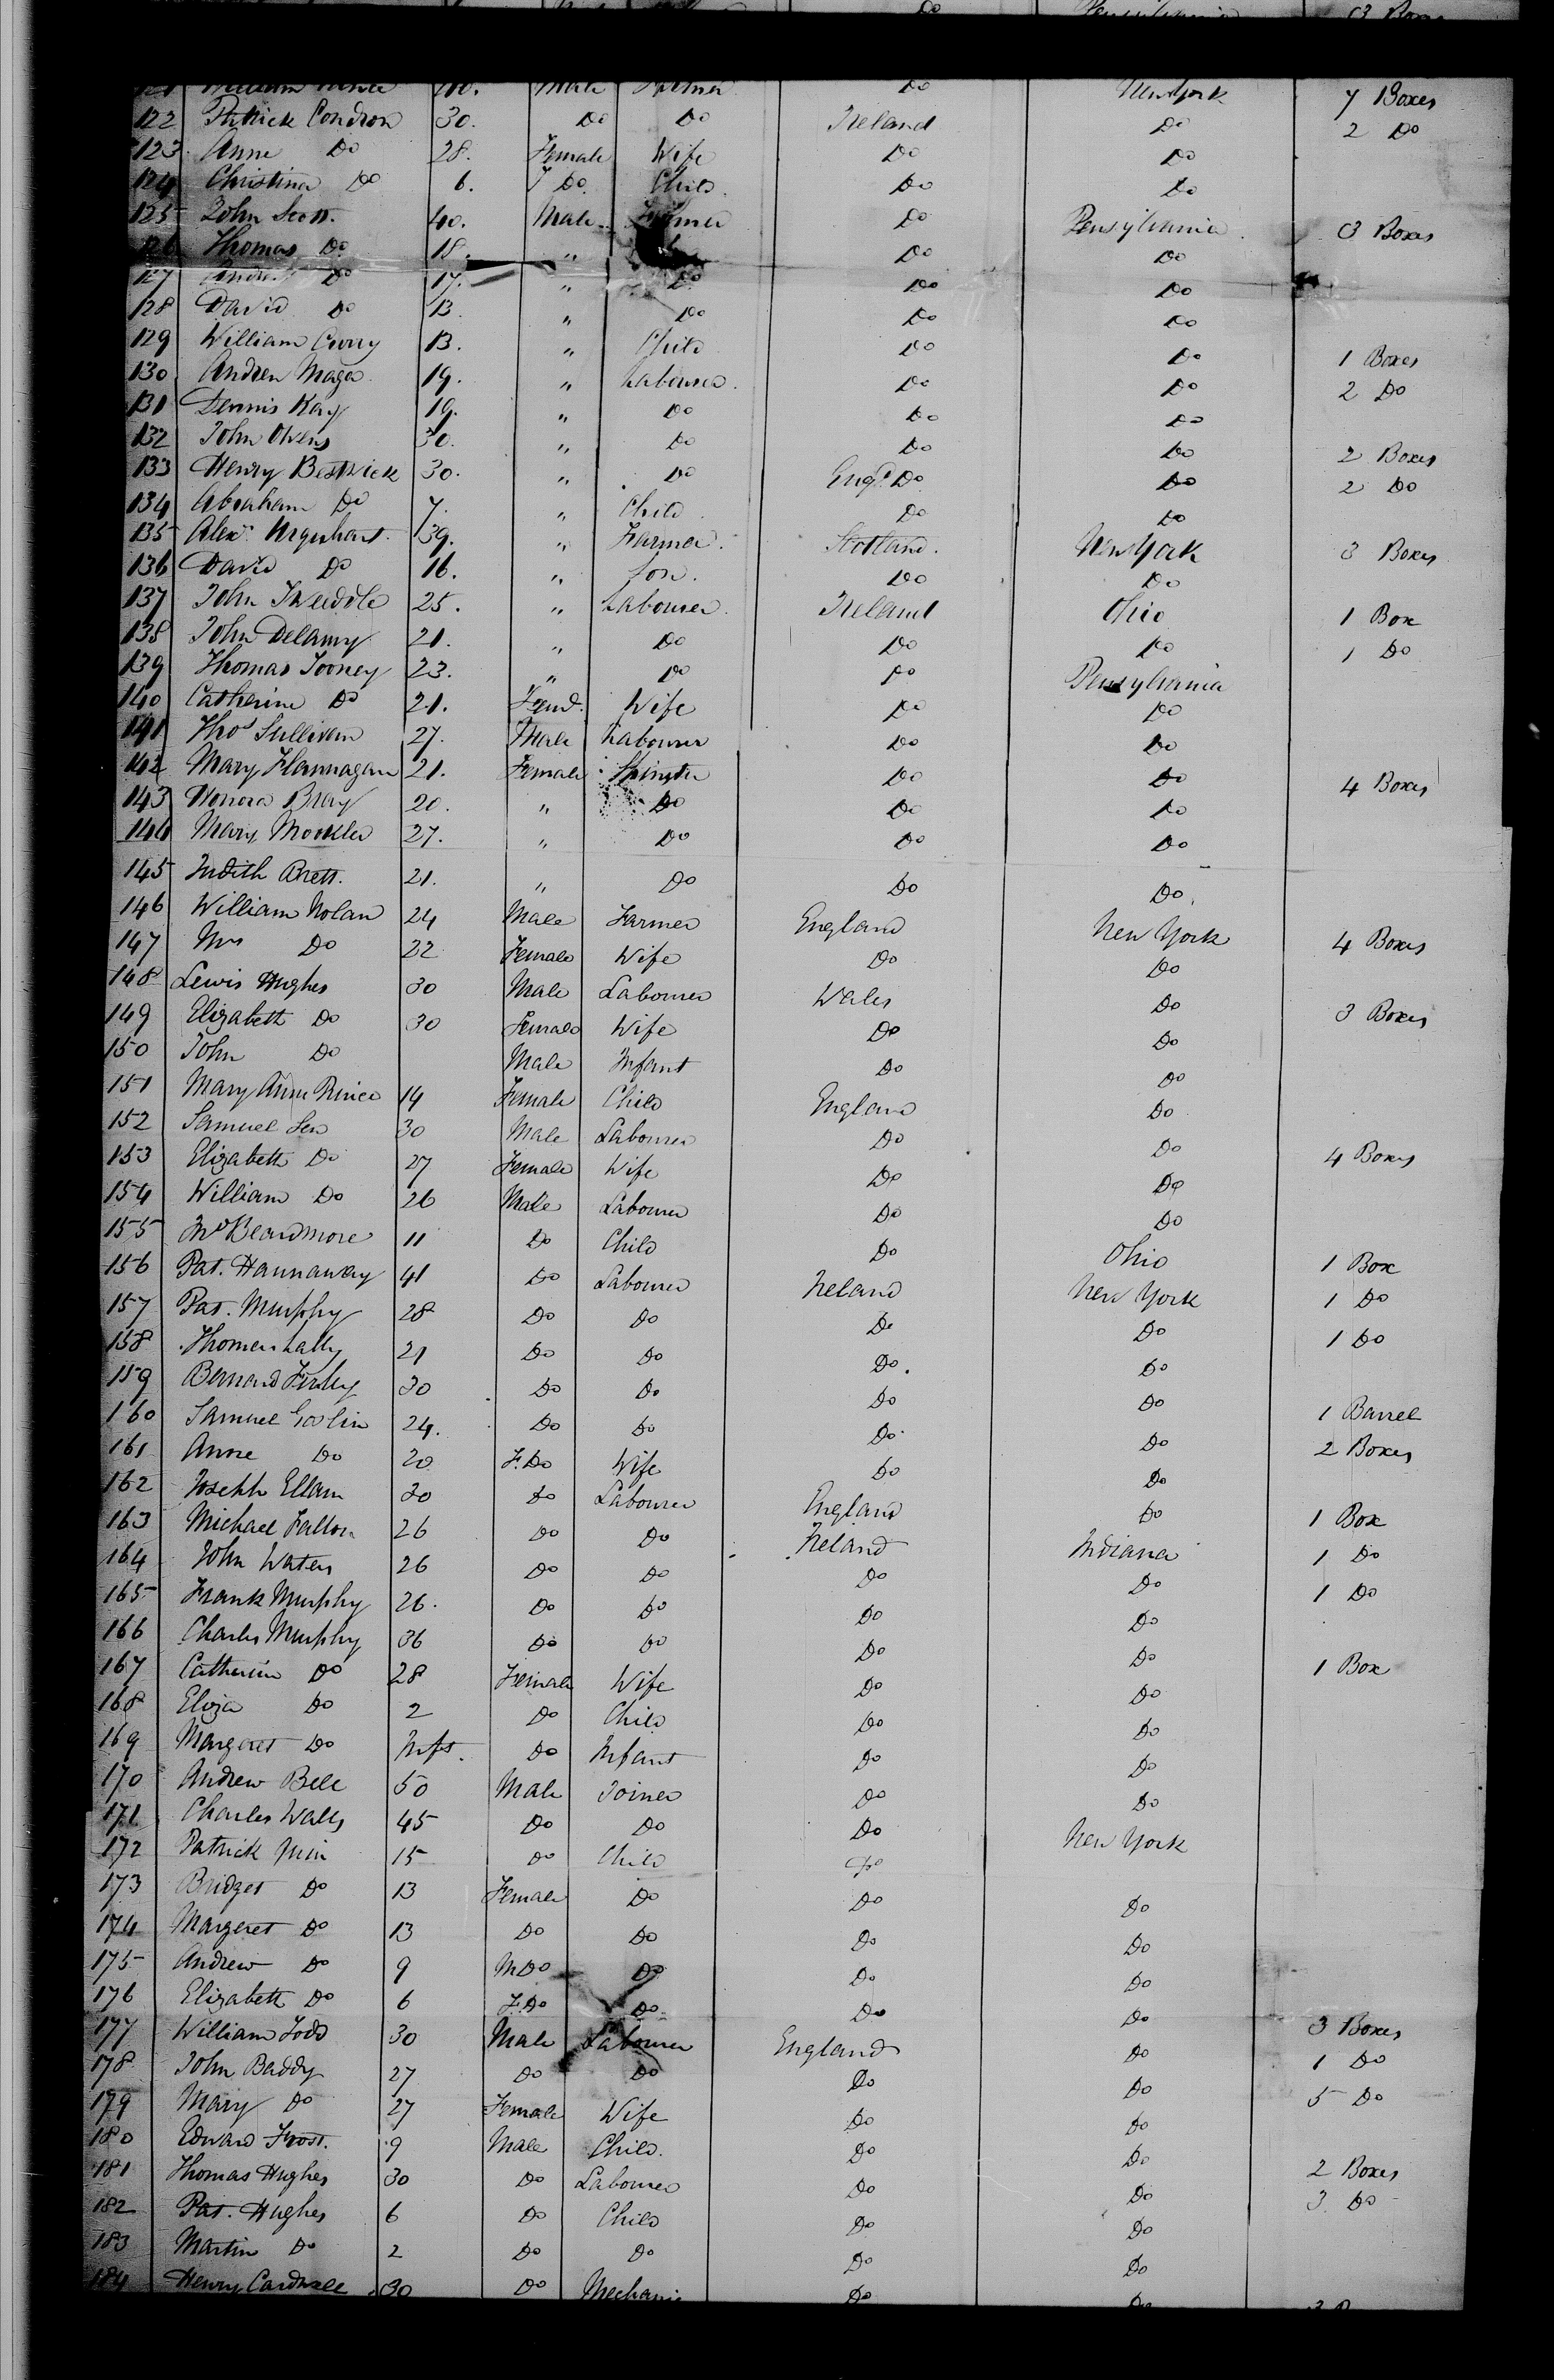 Do Pensilvania 3 Boxes
121 William 40. Male Farmer Do New York 7 Boxes
122 Patrick Condron 30. Do Do Ireland Do 2 Do
123 Anne Do 28. Female Wife Do Do
124 Christina Do 6. F Do Child Do Do
125 John Scott. 40. Male Farmer Do Pensylvania 3 Boxes
126 Thomas Do 18. " Do Do
127 Andrew Do 17. " Do Do Do
128 David Do 13. " Do Do Do
129 William Curry 13. " Child Do Do 1 Boxes
130 Andrew Magee 19. " Labourer. Do Do 2 Do
131 Dennis Kay 19. " Do Do Do
132 John Owens 30. " Do Do Do 2 Boxes
133 Henry Bestwick 30. " Do Engd. Do Do 2 Do
134 Abraham Do 7. " Child Do Do
135 Alexr Urquhart. 39. " Farmer. Scotland. New York 3 Boxes
136 David Do 16. " Son. Do Do
137 John Tweddle 25. " Labourer. Ireland Ohio 1 Box
138 John Delamy 21. " Do Do Do 1 Do
139 Thomas Tooney 23. " Do Do Pensylvania
140 Catherine Do 21. Femd. Wife Do Do
141 Thos Sullivan 27. Male Labourer Do Do
142 Mary Flannagan 21. Female Spinster Do Do 4 Boxes
143 Honora Bray 20. " Do Do Do
144 Mary Mockler 27. " Do Do Do
145 Judith Brett. 21. " Do Do Do
146 William Nolan 24 Male Farmer England New York 4 Boxes
147 Mrs Do 22 Female Wife Do Do
148 Lewis Hughes 30 Male Labourer Wales Do 3 Boxes
149 Elizabeth Do 30 Female Wife Do Do
150 John Do Male Infant Do Do
151 Mary Anne Prince 14 Female Child England Do
152 Samuel Lea 30 Male Labourer Do Do 4 Boxes
153 Elizabeth Do 27 Female Wife Do Do
154 William Do 26 Male Labourer Do Do
155 Jno Beardmore 11 Do Child Do Ohio 1 Box
156 Pat. Hannaway 41 Do Labourer Ireland New York 1 Do
157 Pat. Murphy 28 Do Do Do Do 1 Do
158 Thomas Lally 21 Do Do Do. Do
159 Bernard Farley 30 Do Do Do Do 1 Barrel
160 Samuel Goslin 24. Do Do Do Do 2 Boxes
161 Anne Do 20 F. Do Wife Do Do
162 Joseph Ellam 30 Do Labourer England Do 1 Box
163 Michael Fallon 26 Do Do Ireland Indiana 1 Do
164 John Waters 26 Do Do Do Do 1 Do
165 Frank Murphy 26. Do Do Do Do
166 Charles Murphy 36 Do Do Do Do 1 Box
167 Catherine Do 28 Female Wife Do Do
168 Eliza Do 2 Do Child Do Do
169 Margaret Do Inft. Do Infant Do Do
170 Andrew Bell 50 Male Joiner Do Do
171 Charles Walls 45 Do Do Do New York
172 Patrick 15 Do Child Do
173 Bridget Do 13 Female Do Do Do
174 Margeret Do 13 Do Do Do Do
175 Andrew Do 9 M Do Do Do Do
176 Elizabeth Do 6 F. Do Do Do Do 3 Boxes
177 William Todd 30 Male Labourer England Do 1 Do
178 John Baddy 27 Do Do Do Do 5 Do
179 Mary Do 27 Female Wife Do Do
180 Edward Frost. 9 Male Child. Do Do 2 Boxes
181 Thomas Hughes 30 Do Labourer Do Do 3 Do
182 Pat. Hughes 6 Do Child Do Do
183 Martin Do 2 Do Do Do Do
184 Henry Cardwell 30 Do Mechanic Do Do